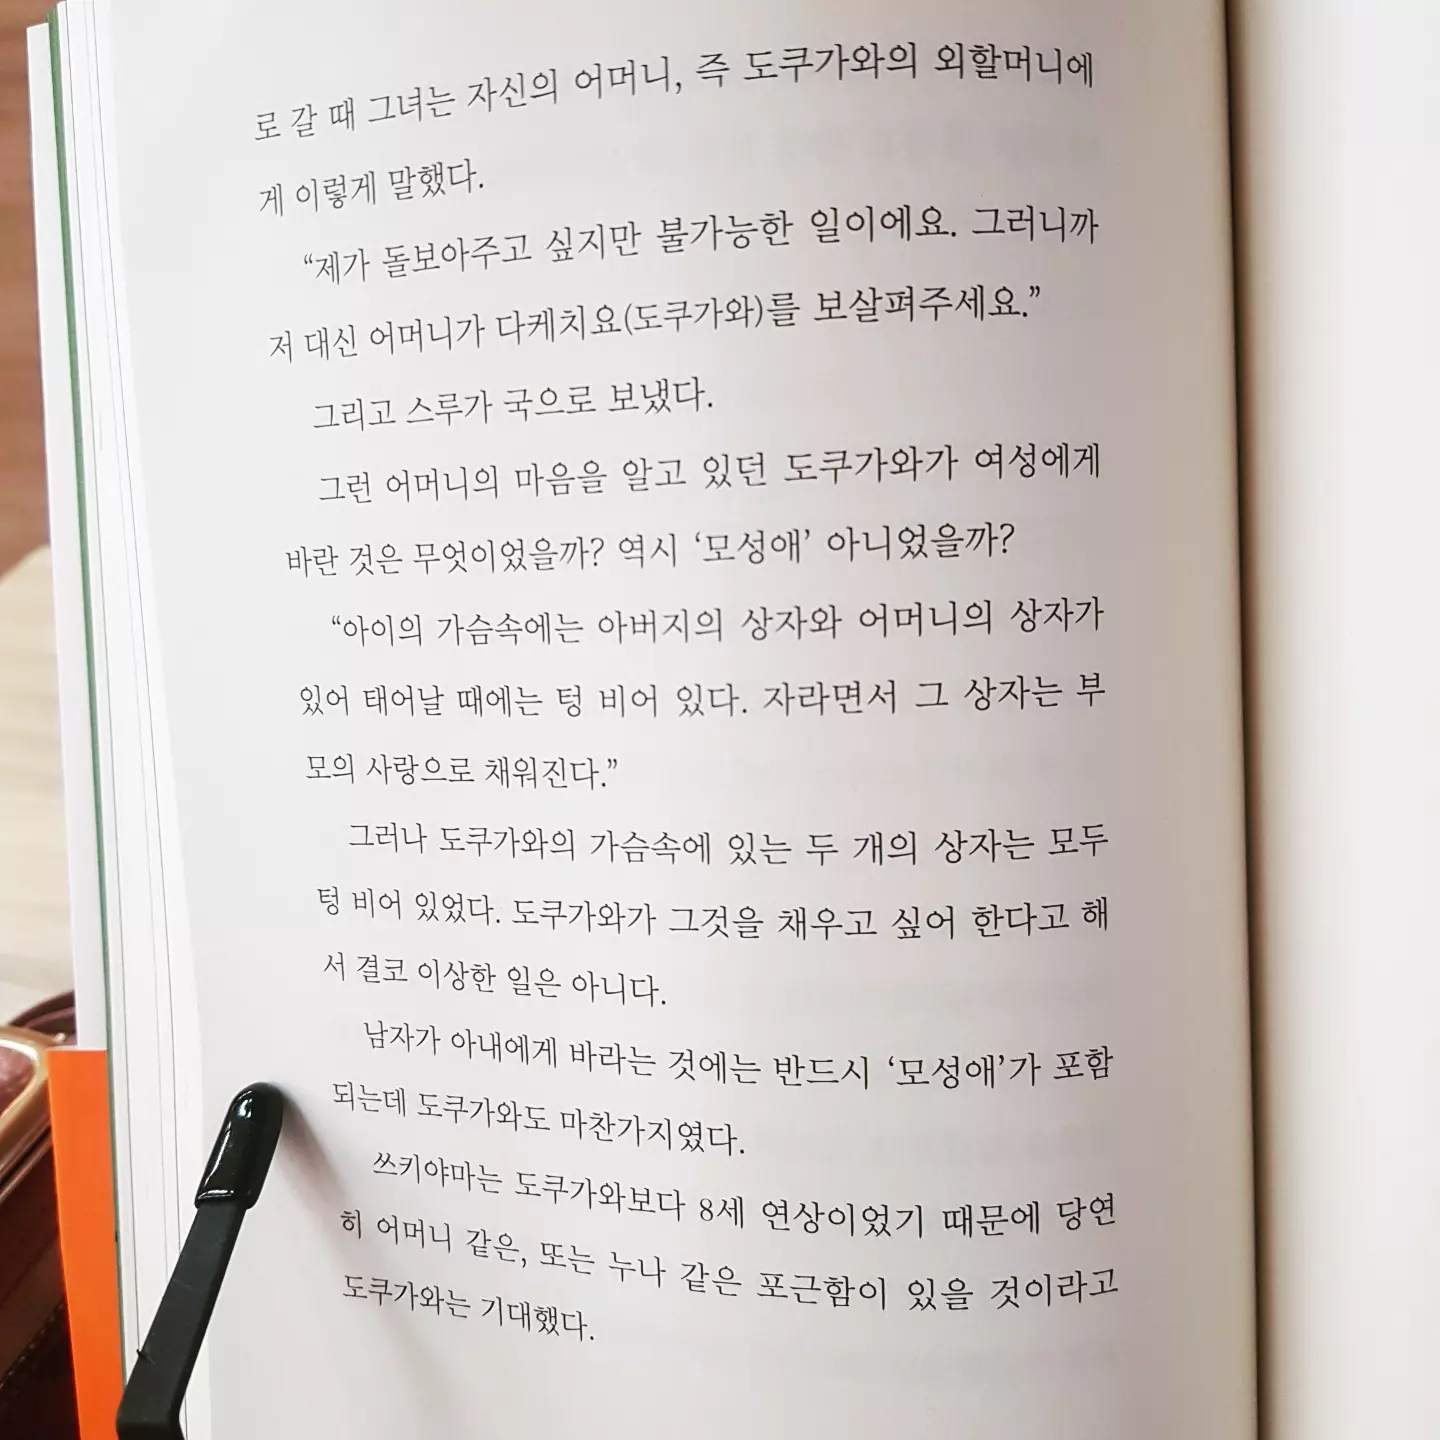 로 갈 때 그녀는 자신의 어머니, 즉 도쿠가와의 외할머니에
게 이렇게 말했다.
“제가 돌보아주고 싶지만 불가능한 일이에요. 그러니까
저 대신 어머니가 다케치요(도쿠가와)를 보살펴주세요.”
그리고 스루가 국으로 보냈다.
그런 어머니의 마음을 알고 있던 도쿠가와가 여성에게
바란 것은 무엇이었을까? 역시 ‘모성애’ 아니었을까?
“아이의 가슴속에는 아버지의 상자와 어머니의 상자가
있어 태어날 때에는 텅 비어 있다. 자라면서 그 상자는 부
모의 사랑으로 채워진다.”
그러나 도쿠가와의 가슴속에 있는 두 개의 상자는 모두
텅 비어 있었다. 도쿠가와가 그것을 채우고 싶어 한다고 해
서 결코 이상한 일은 아니다.
남자가 아내에게 바라는 것에는 반드시 ‘모성애’가 포함
되는데 도쿠가와도 마찬가지였다.
쓰키야마는 도쿠가와보다 8세 연상이었기 때문에 당연
히 어머니 같은, 또는 누나 같은 포근함이 있을 것이라고
도쿠가와는 기대했다.